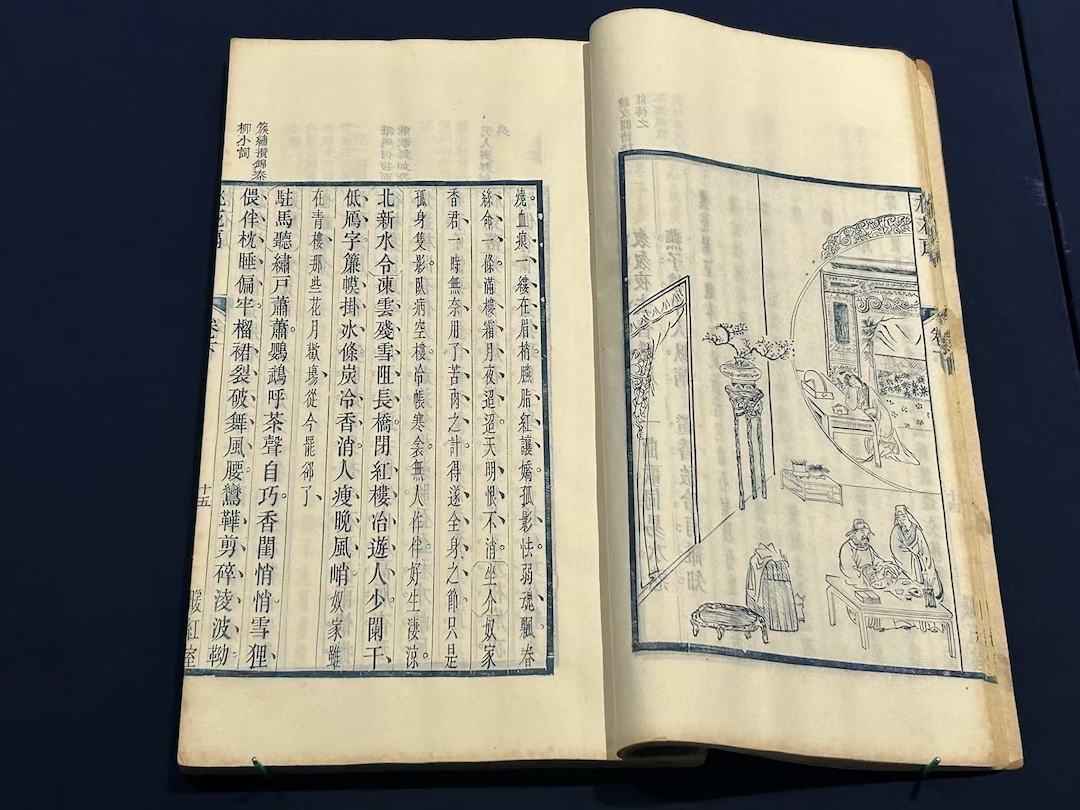 桃花扇
卷下
燒。血痕一縷在眉梢、臙脂紅讓嬌、孤影怯。弱魂飄、春
絲命一條、滿樓霜月夜迢迢、天明恨不消、坐介奴家
香君一時無奈、用了苦肉之計、得遂全身之節、只是
孤身隻影、臥病空樓、冷帳寒衾、無人作伴、好生淒涼。
北新水令凍雲殘雪阻長橋、閉紅樓冶遊人少、闌干
低鴈字、簾幙掛冰條、炭冷香消、人瘦晚風峭、奴家雖
在青樓、那些花月歡塲、從今罷卻了、
駐馬聽繡戶蕭蕭。鸚鵡呼茶聲自巧。香閨悄悄、雪狸
偎伴枕睡偏牢、榴裙裂破舞風腰、鸞鞾剪碎凌波勒
簇繡攢錦秦
柳小詞
桃花扇
卷下
十五
暖紅室